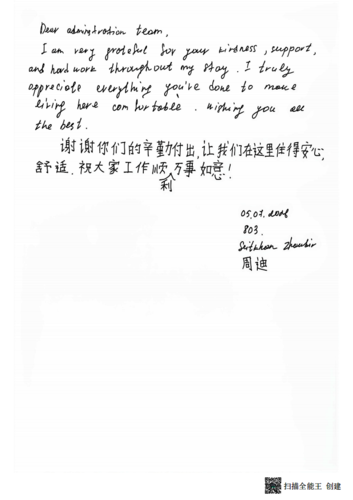 Dear administration team,
I am very grateful for your kindness, support,
and hard work throughout my stay. I truly
appreciate everything you've done to make
living here comfortable. Wishing you all
the best.
谢谢你们的辛勤付出,让我们在这里住得安心,
舒适.祝大家工作顺利,万事如意!
803.
周迪
扫描全能王 创建